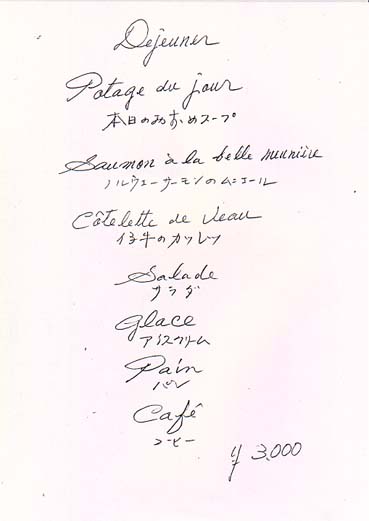 Dejeuner
Potage du jour
本日のおすすめスープ
Saumon à la belle meunière
ノルウェーサーモンのムニエール
Côtelette de veau
仔牛のカツレツ
Salade
サラダ
Glace
アイスクリーム
Pain
パン
Café
コーヒー
¥ 3.000